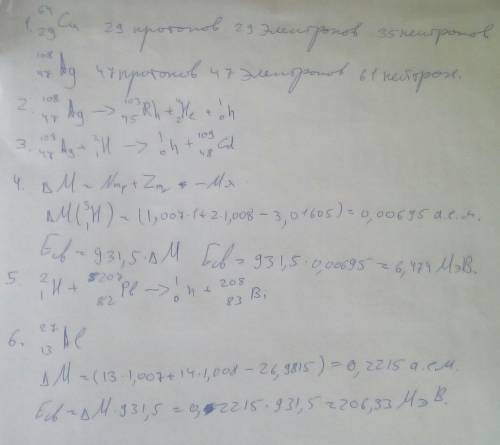 1. ⁶⁴₂₉Cu 29 протонов 29 электронов 35 нейтронов
¹⁰⁸₄₇Ag 47 протонов 47 электронов 61 нейтрон.
2. ¹⁰⁸₄₇Ag → ¹⁰³₄₅Rh + ⁴₂He + ¹₀n
3. ¹⁰⁸₄₇Ag + ²₁H → ¹₀n + ¹⁰⁹₄₈Cd
4. ΔM = Nmp + Zmn - Mx
ΔM(³₁H) = (1,007+2·1,008 - 3,01605) = 0,00695 а.е.м.
Eсв = 931,5·ΔM Eсв = 931,5·0,00695 = 6,474 МэВ.
5. ²₁H + ²⁰⁷₈₂Pb → ¹₀n + ²⁰⁸₈₃Bi
6. ²⁷₁₃Al
ΔM = (13·1,007+14·1,008 - 26,9815) = 0,2215 а.е.м.
Eсв = ΔM·931,5 = 0,2215·931,5 = 206,33 МэВ.